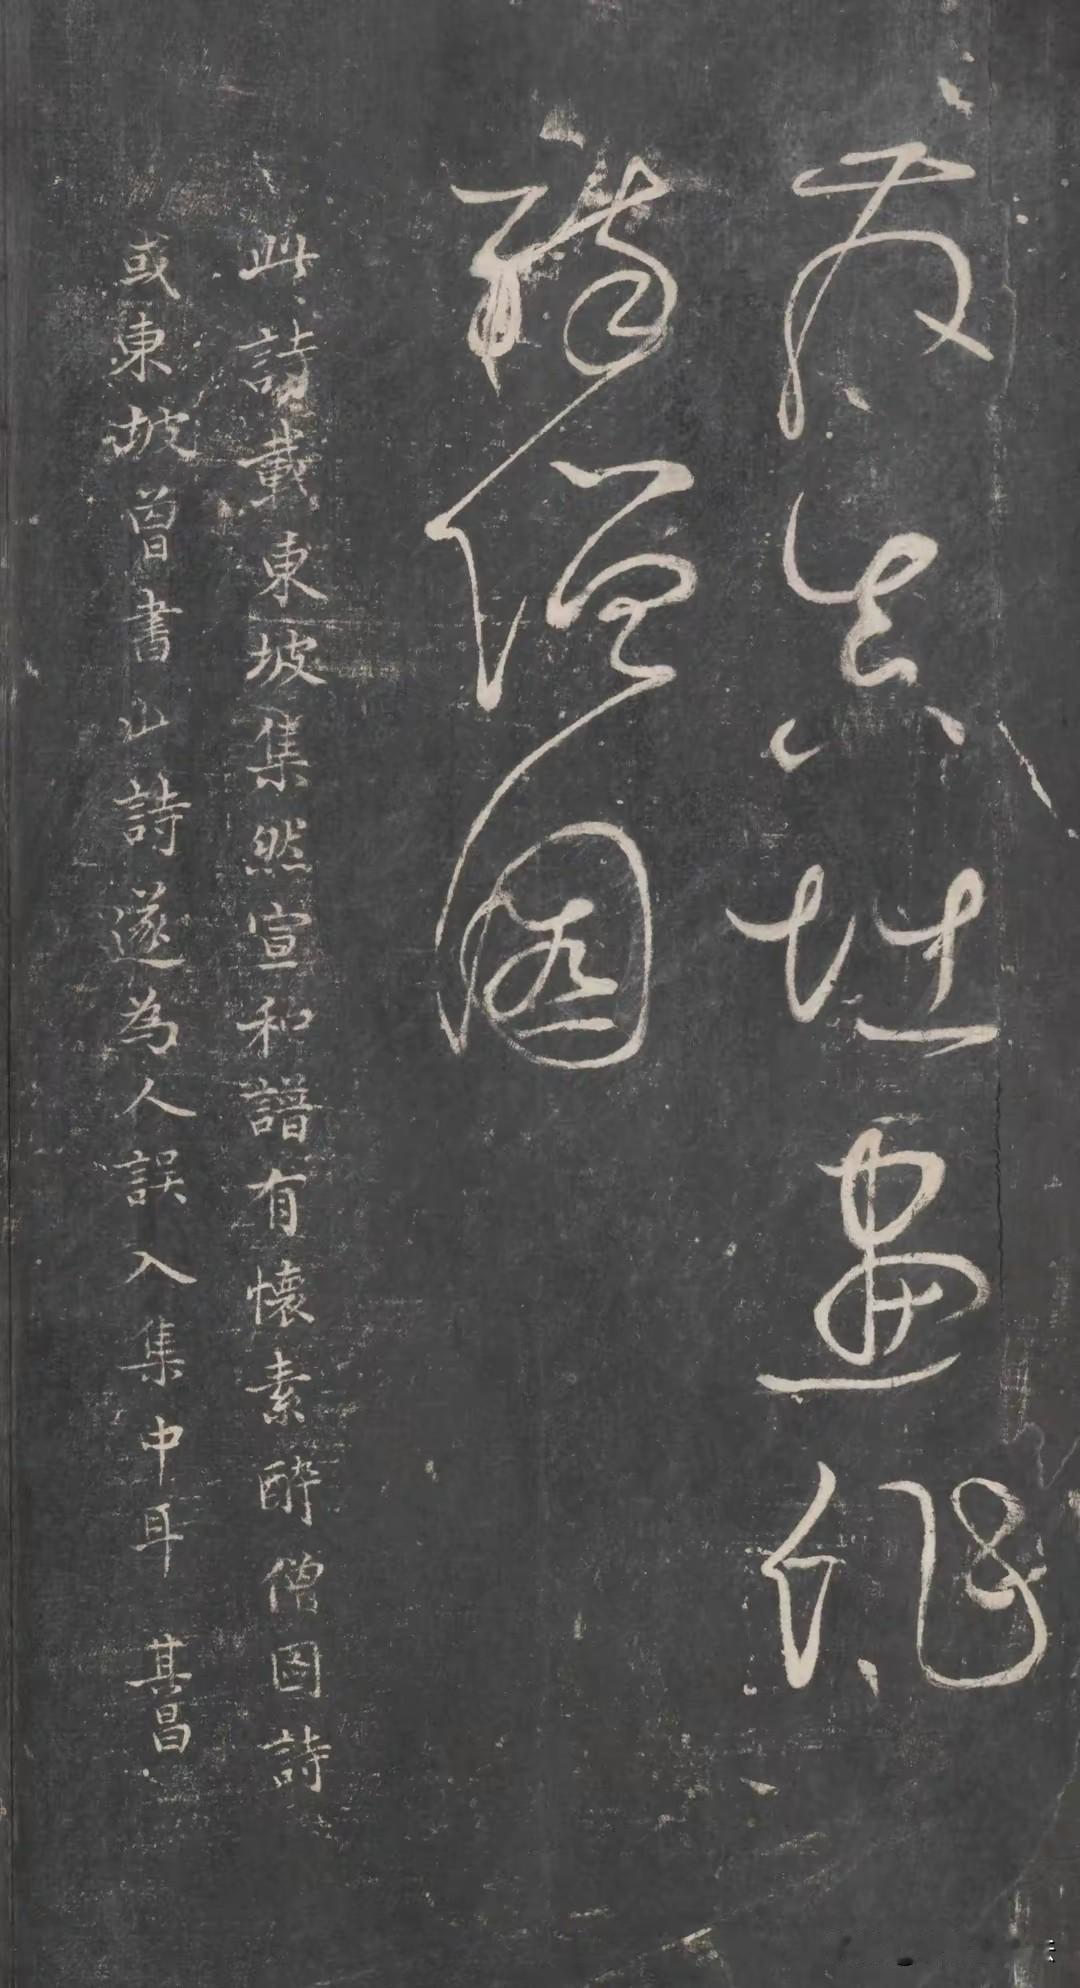 發真堪畫作
醉僧圖
此詩載東坡集然宣和譜有懷素醉僧圖詩
或東坡曾書此詩遂為人誤入集中耳 其昌